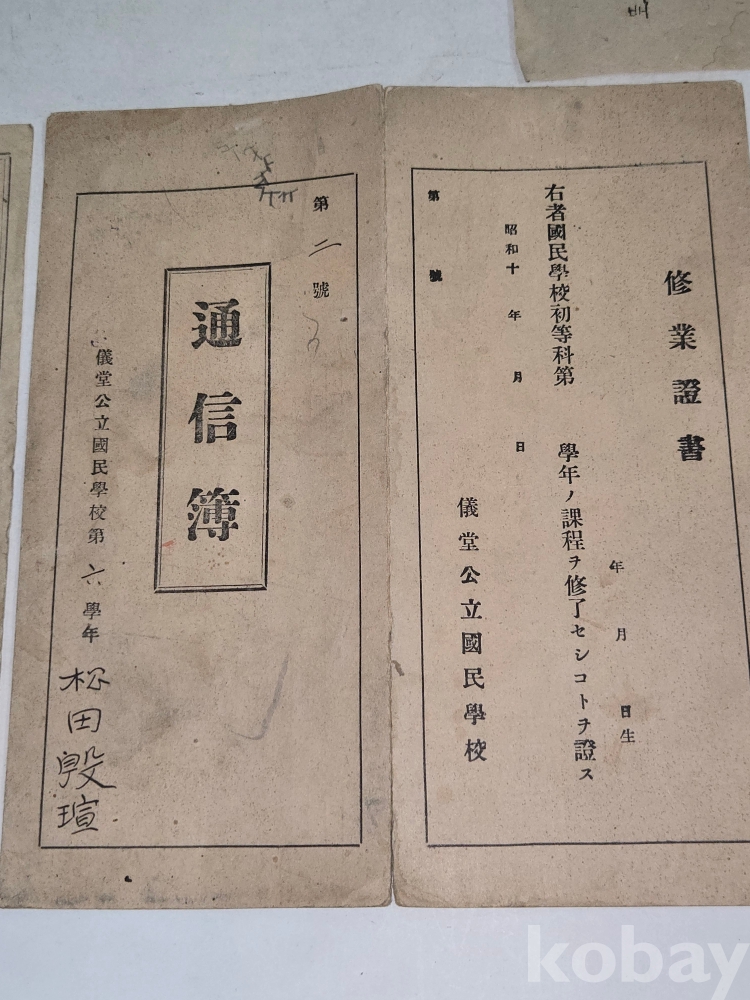 修業證書
年 月 日生
右者國民學校初等科第 學年ノ課程ヲ修了セシコトヲ證ス
昭和十 年 月 日
儀堂公立國民學校
第 號
第 二 號
通信簿
儀堂公立國民學校第 六 學年
松田殷瑄
kobay